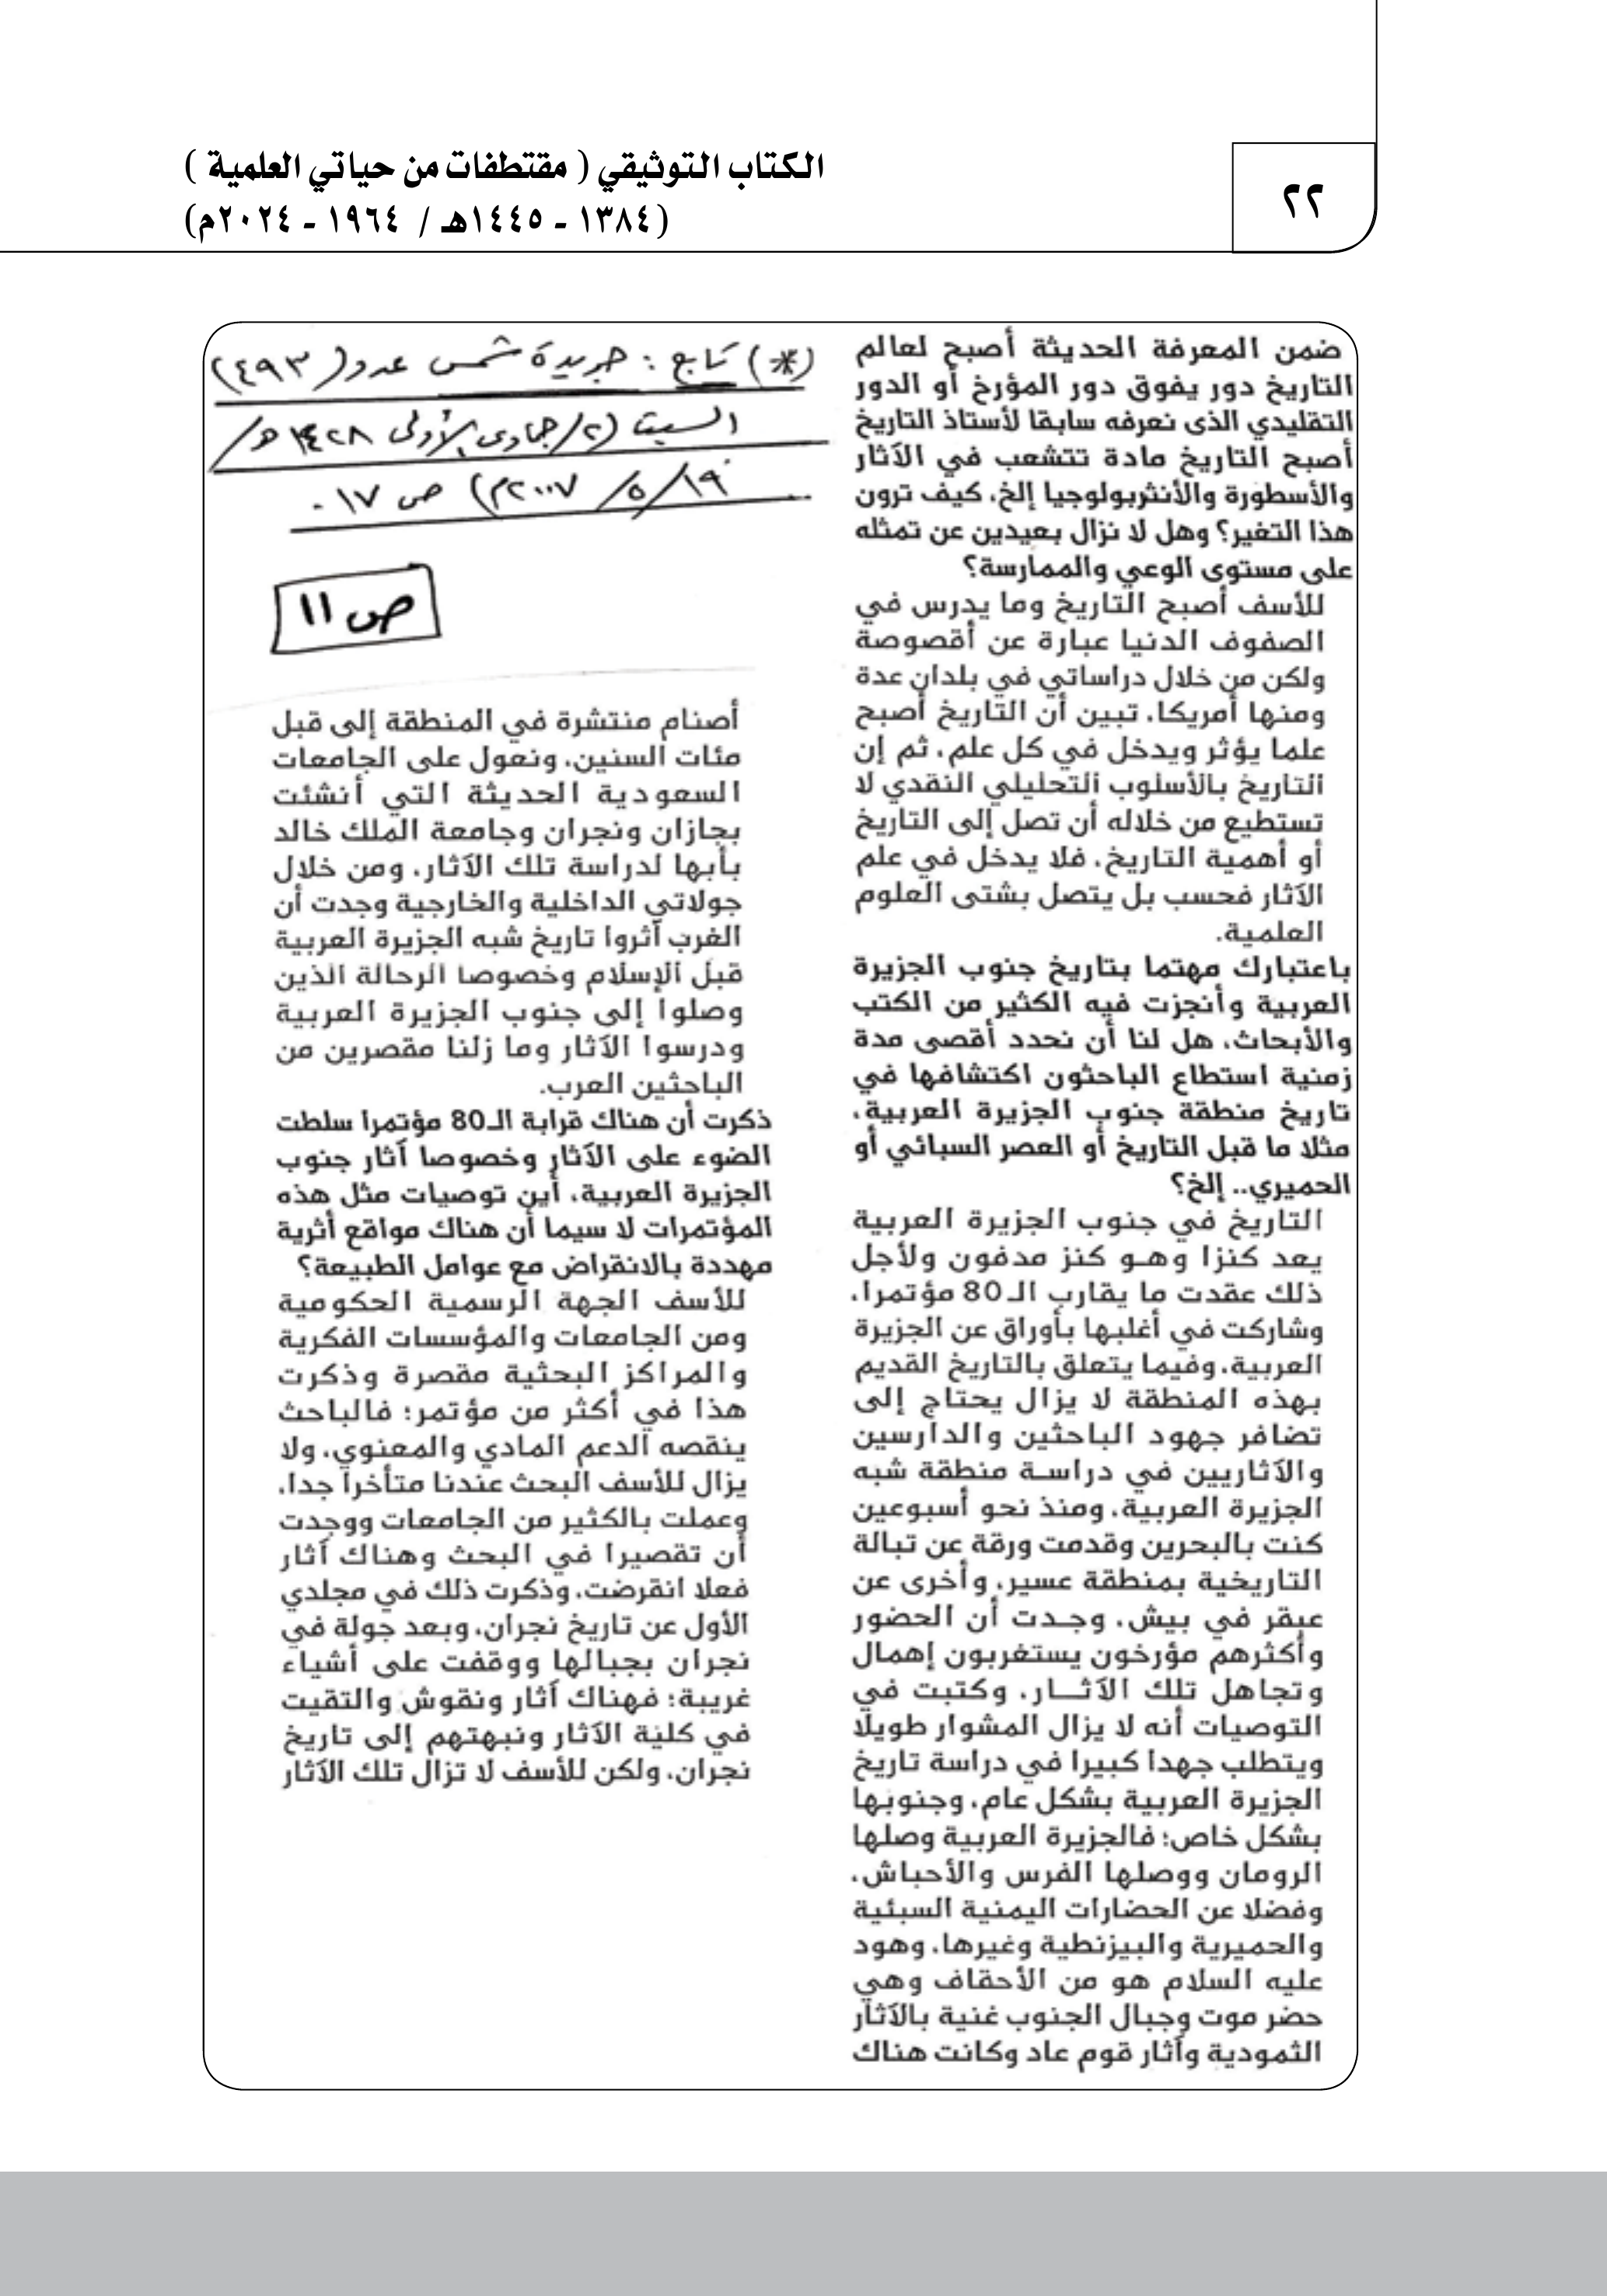 الكتاب التوثيقي ( مقتطفات من حياتي العلمية )
(١٣٨٤ - ١٤٤٥هـ / ١٩٦٤ - ٢٠٢٤م)
٢٢
ضمن المعرفة الحديثة أصبح لعالم
التاريخ دور يفوق دور المؤرخ أو الدور
التقليدي الذى نعرفه سابقا لأستاذ التاريخ
أصبح التاريخ مادة تتشعب في الآثار
والأسطورة والأنثربولوجيا إلخ، كيف ترون
هذا التغير؟ وهل لا نزال بعيدين عن تمثله
على مستوى الوعي والممارسة؟
للأسف أصبح التاريخ وما يدرس في
الصفوف الدنيا عبارة عن أقصوصة
ولكن من خلال دراساتي في بلدان عدة
ومنها أمريكا، تبين أن التاريخ أصبح
علما يؤثر ويدخل في كل علم، ثم إن
التاريخ بالأسلوب التحليلي النقدي لا
تستطيع من خلاله أن تصل إلى التاريخ
أو أهمية التاريخ، فلا يدخل في علم
الآثار فحسب بل يتصل بشتى العلوم
العلمية.
باعتبارك مهتما بتاريخ جنوب الجزيرة
العربية وأنجزت فيه الكثير من الكتب
والأبحاث، هل لنا أن نحدد أقصى مدة
زمنية استطاع الباحثون اكتشافها في
تاريخ منطقة جنوب الجزيرة العربية،
مثلا ما قبل التاريخ أو العصر السبائي أو
الحميري.. إلخ؟
التاريخ في جنوب الجزيرة العربية
يعد كنزا وهو كنز مدفون ولأجل
ذلك عقدت ما يقارب الـ80 مؤتمرا،
وشاركت في أغلبها بأوراق عن الجزيرة
العربية، وفيما يتعلق بالتاريخ القديم
بهذه المنطقة لا يزال يحتاج إلى
تضافر جهود الباحثين والدارسين
والآثاريين في دراسة منطقة شبه
الجزيرة العربية، ومنذ نحو أسبوعين
كنت بالبحرين وقدمت ورقة عن تبالة
التاريخية بمنطقة عسير، وأخرى عن
عبقر في بيش، وجدت أن الحضور
وأكثرهم مؤرخون يستغربون إهمال
وتجاهل تلك الآثــار، وكتبت في
التوصيات أنه لا يزال المشوار طويلا
ويتطلب جهدا كبيرا في دراسة تاريخ
الجزيرة العربية بشكل عام، وجنوبها
بشكل خاص؛ فالجزيرة العربية وصلها
الرومان ووصلها الفرس والأحباش،
وفضلا عن الحضارات اليمنية السبئية
والحميرية والبيزنطية وغيرها، وهود
عليه السلام هو من الأحقاف وهي
حضر موت وجبال الجنوب غنية بالآثار
الثمودية وآثار قوم عاد وكانت هناك
(*) تابع : جريدة شمس عدد (٤٩٣)
السبت (٢/جمادى الأولى ١٤٢٨هـ/
١٩/٥/٢٠٠٧م) ص ١٧.
ص ١١
أصنام منتشرة في المنطقة إلى قبل
مئات السنين، ونعول على الجامعات
السعودية الحديثة التي أنشئت
بجازان ونجران وجامعة الملك خالد
بأبها لدراسة تلك الآثار، ومن خلال
جولاتي الداخلية والخارجية وجدت أن
الغرب أثروا تاريخ شبه الجزيرة العربية
قبل الإسلام وخصوصا الرحالة الذين
وصلوا إلى جنوب الجزيرة العربية
ودرسوا الآثار وما زلنا مقصرين من
الباحثين العرب.
ذكرت أن هناك قرابة الـ80 مؤتمرا سلطت
الضوء على الآثار وخصوصا آثار جنوب
الجزيرة العربية، أين توصيات مثل هذه
المؤتمرات لا سيما أن هناك مواقع أثرية
مهددة بالانقراض مع عوامل الطبيعة؟
للأسف الجهة الرسمية الحكومية
ومن الجامعات والمؤسسات الفكرية
والمراكز البحثية مقصرة وذكرت
هذا في أكثر من مؤتمر؛ فالباحث
ينقصه الدعم المادي والمعنوي، ولا
يزال للأسف البحث عندنا متأخرا جدا،
وعملت بالكثير من الجامعات ووجدت
أن تقصيرا في البحث وهناك آثار
فعلا انقرضت، وذكرت ذلك في مجلدي
الأول عن تاريخ نجران، وبعد جولة في
نجران بجبالها ووقفت على أشياء
غريبة؛ فهناك آثار ونقوش والتقيت
في كلية الآثار ونبهتهم إلى تاريخ
نجران، ولكن للأسف لا تزال تلك الآثار